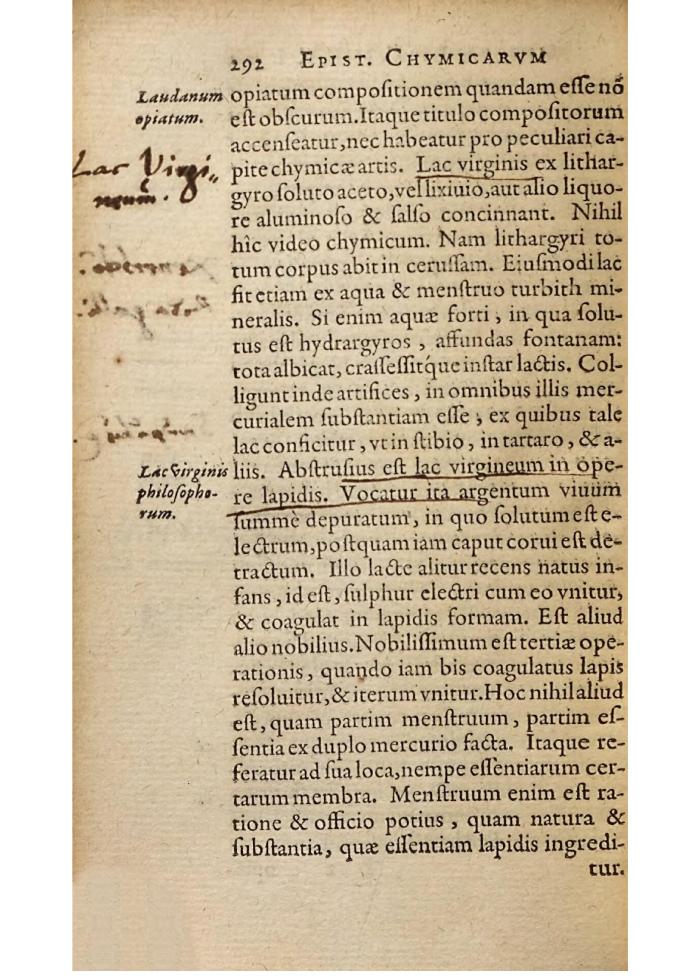 292 EPIST. CHYMICARVM
Laudanum
opiatum.
opiatum compoſitionem quandam eſſe nõ
eſt obſcurum.Itaque titulo compoſitorum
accenſeatur,nec habeatur pro peculiari ca-
pite chymicæ artis. Lac virginis ex lithar-
Lac Virgi„
neum.
gyro ſoluto aceto,vel lixiuio,aut alio liquo-
re aluminoſo & ſalſo concinnant. Nihil
hîc video chymicum. Nam lithargyri to-
tum corpus abit in ceruſſam. Eiuſmodi lac
fit etiam ex aqua & menſtruo turbith mi-
neralis. Si enim aquæ forti, in qua ſolu-
tus eſt hydrargyros, affundas fontanam:
tota albicat, craſſeſſitq́ue inſtar lactis. Col-
ligunt inde artifices, in omnibus illis mer-
curialem ſubſtantiam eſſe, ex quibus tale
lac conficitur, vt in ſtibio, in tartaro, & a-
Lac Virginis
philoſopho-
rum.
liis. Abſtruſius eſt lac virgineum in ope-
re lapidis. Vocatur ita argentum viuum
ſummè depuratum, in quo ſolutum eſt e-
lectrum,poſtquam iam caput corui eſt de-
tractum. Illo lacte alitur recens natus in-
fans, id eſt, ſulphur electri cum eo vnitur,
& coagulat in lapidis formam. Eſt aliud
alio nobilius.Nobiliſſimum eſt tertiæ ope-
rationis, quando iam bis coagulatus lapis
reſoluitur,& iterum vnitur.Hoc nihil aliud
eſt, quam partim menſtruum, partim eſ-
ſentia ex duplo mercurio facta. Itaque re-
feratur ad ſua loca,nempe eſſentiarum cer-
tarum membra. Menſtruum enim eſt ra-
tione & officio potius, quam natura &
ſubſtantia, quæ eſſentiam lapidis ingredi-
tur.